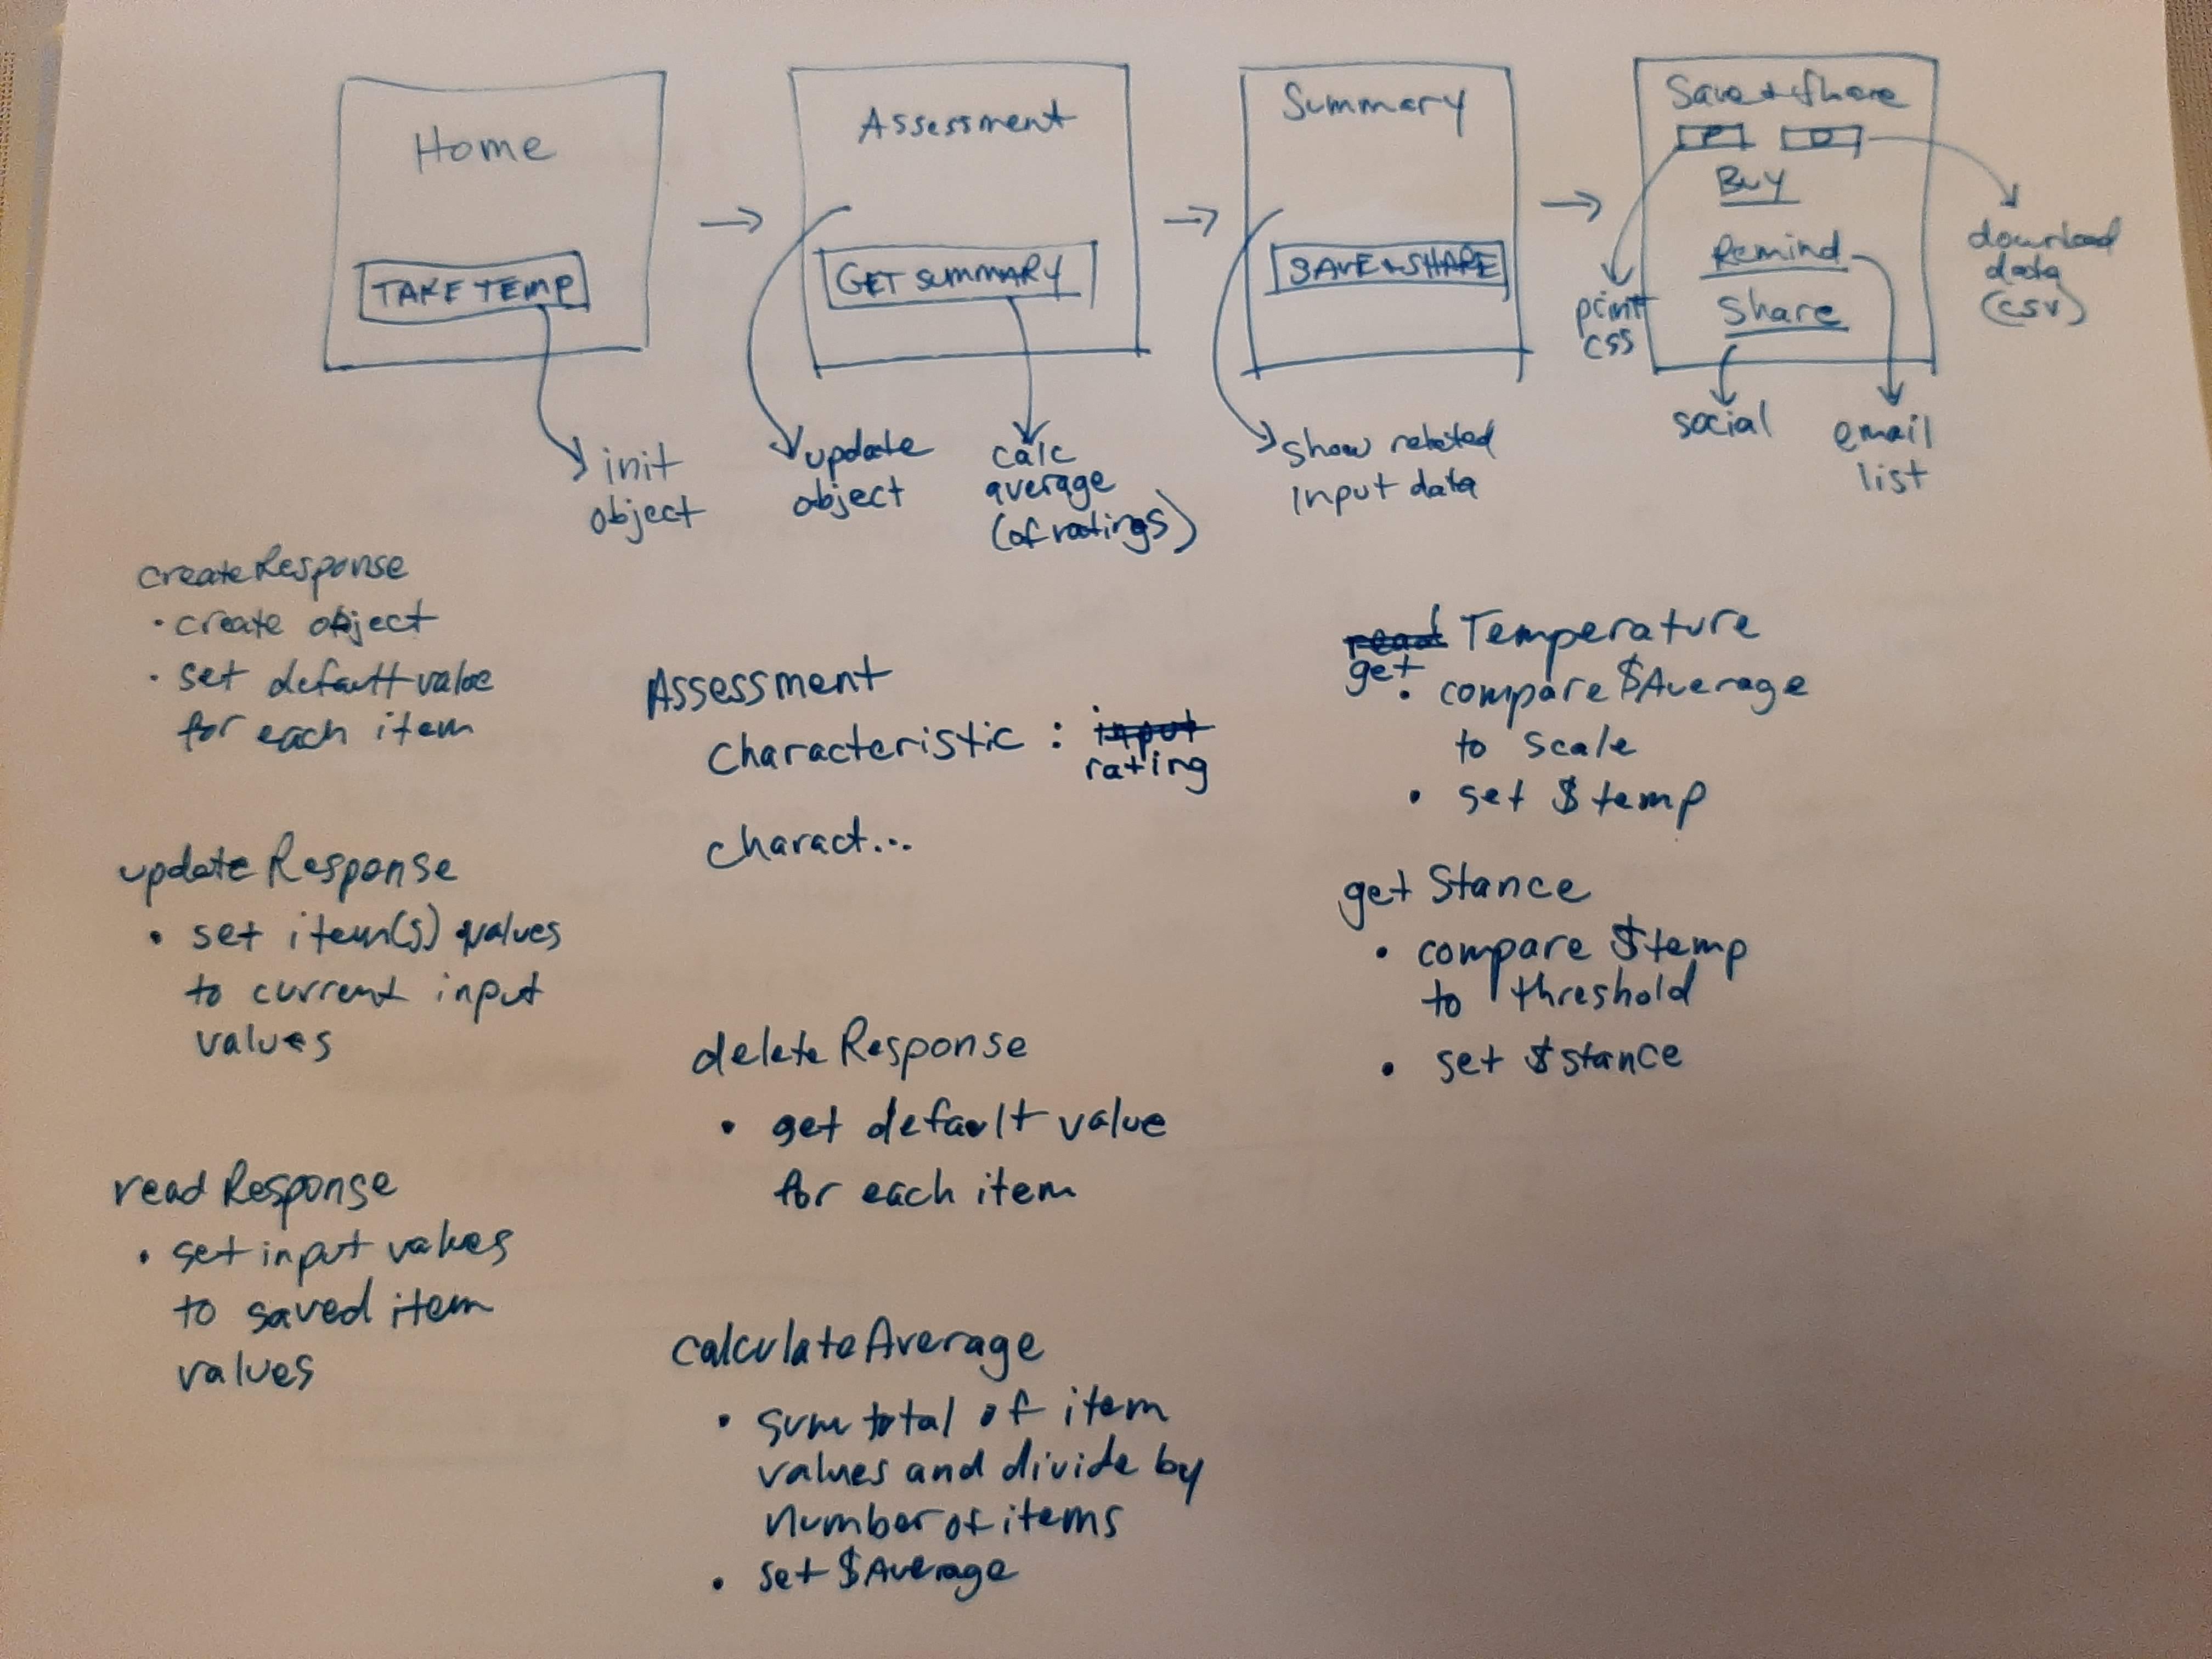 Home
TAKE TEMP
init
object
Assessment
GET SUMMARY
update
object
calc
average
(of ratings)
Summary
SAVE + SHARE
show related
input data
Save + Share
P
D
Buy
Remind
Share
print
css
social
email
list
download
data
(csv)
createResponse
• create object
• set default value
for each item
updateResponse
• set item(s) values
to current input
values
readResponse
• set input values
to saved item
values
Assessment
characteristic : input
rating
charact...
deleteResponse
• get default value
for each item
calculateAverage
• sum total of item
values and divide by
number of items
• set $Average
read Temperature
get
• compare $Average
to scale
• set $temp
getStance
• compare $temp
to threshold
• set $stance